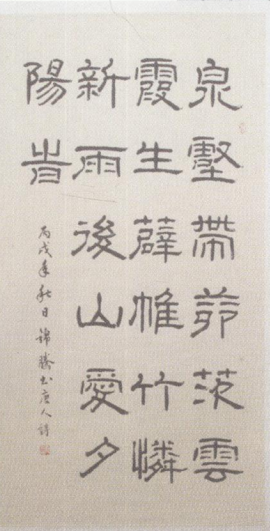 泉壑帶茆茨雲
霞生薜帷竹憐
新雨後山愛夕
陽旹
丙戌年秋日錦書唐人詩